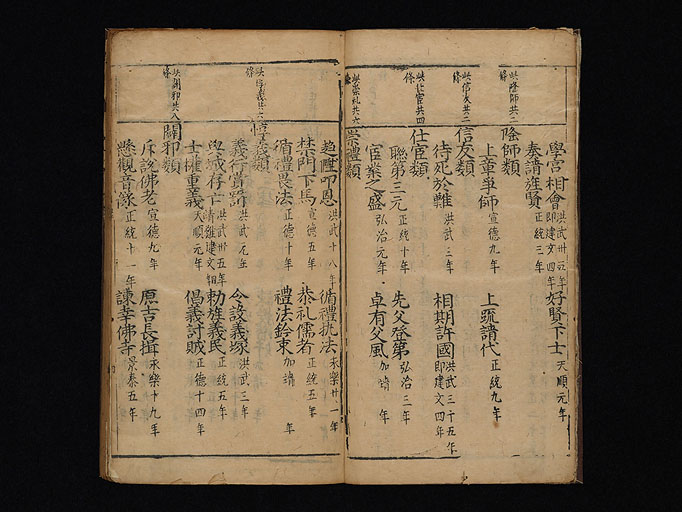 學宮相會 洪武卅五年 即建文四年 好賢下士 天順元年
奏請旌賢 正統三年
隆師類 此隆師共二條
上章爭師 宣德九年 上疏請代 正統九年
信友類 此信友共二條
待死於難 洪武三年 相期許國 洪武三十五年 即建文四年
仕宦類 此仕宦共四條
聰第三元 正統十年 先父登第 弘治三年
宦業之盛 弘治元年 卓有父風 加靖 年
崇禮類 此崇礼共六條
趋陛叩恩 洪武十八年 循禮抗法 永樂廿一年
禁門下馬 宣德五年 恭礼儒者 正統五年
循禮畏法 正德十年 禮法鈐束 加靖 年
義類
義行賞 洪武元年 今設義塚 洪武三年
城存亡 洪武卅五年 勅旌義民 正統五年
士權重義 天順元年 倡義討賊 正德十四年
闢邪類 此闢邪共八條
斥説佛老 宣德九年 原吉長揖 永樂十九年
觀音 正統十一年 諫幸佛寺 景泰五年